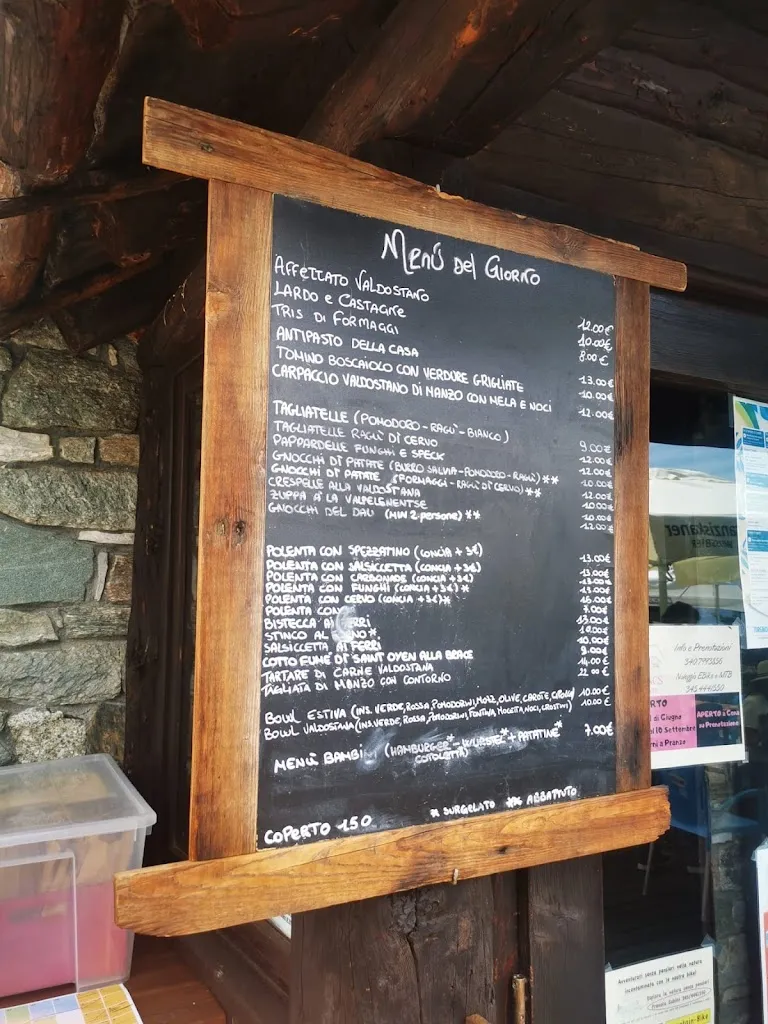 Menù del Giorno
Affettato Valdostano 12.00€
Lardo e Castagne 10.00€
Tris di Formaggi 8.00€
Antipasto della Casa 13.00€
Tomino Boscaiolo con Verdure Grigliate 10.00€
Carpaccio Valdostano di Manzo con Mela e Noci 12.00€
Tagliatelle (Pomodoro - Ragù - Bianco) 9.00€
Tagliatelle Ragù di Cervo 12.00€
Pappardelle Funghi e Speck 12.00€
Gnocchi di Patate (Burro Salvia - Pomodoro - Ragù) ** 10.00€
Gnocchi di Patate (Formaggi - Ragù di Cervo) ** 12.00€
Crespelle alla Valdostana 10.00€
Zuppa à la Valpelenentse 10.00€
Gnocchi del Dau (min 2 persone) ** 12.00€
Polenta con Spezzatino (Concia + 3€) 13.00€
Polenta con Salsiccetta (Concia + 3€) 13.00€
Polenta con Carbonade (Concia + 3€)
Polenta con Funghi (Concia + 3€) *
Polenta con Cervo (Concia + 3€) * 16.00€
Polenta 7.00€
Bistecca ai Ferri 13.00€
Stinco al *
Salsiccetta ai Ferri
Cotto Fumé di Saint Oyen alla Brace
Tartare di Carne Valdostana
Tagliata di Manzo con Contorno
Bowl Estiva (Ins. Verde, Rossa, Pomodorini, Mozz, Olive, Carote, 10.00€
Bowl Valdostana (Ins. Verde, Rossa, Pomodorini, Fontina, Mocetta, Noci, Crostini) 10.00€
Menù Bambini (Hamburger* - Wurstel* + Patatine* 7.00€
Cotoletta)
* Surgelato ** Abbattuto
Coperto 1.50
Franziskaner
Info e Prenotazioni
Noleggio EBike e MTB
Giugno
10 Settembre
a Pranzo
APERTO a Cena
su Prenotazione